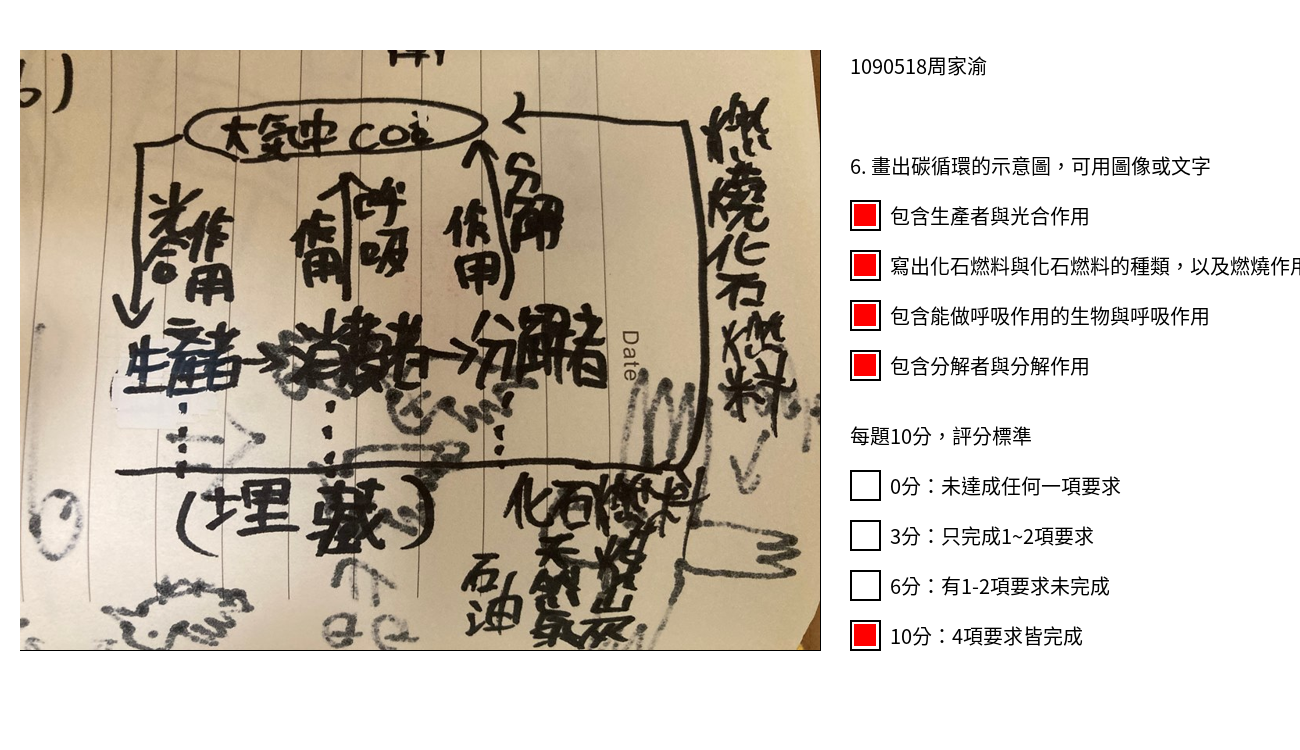 6)
大氣中 CO2
光合作用
呼吸作用
分解作用
燃燒化石燃料
生產者→消費者→分解者
Date
(埋藏)
化石燃料
石油
天然氣
1090518周家渝
6. 畫出碳循環的示意圖，可用圖像或文字
包含生產者與光合作用
寫出化石燃料與化石燃料的種類，以及燃燒作用
包含能做呼吸作用的生物與呼吸作用
包含分解者與分解作用
每題10分，評分標準
0分：未達成任何一項要求
3分：只完成1~2項要求
6分：有1-2項要求未完成
10分：4項要求皆完成